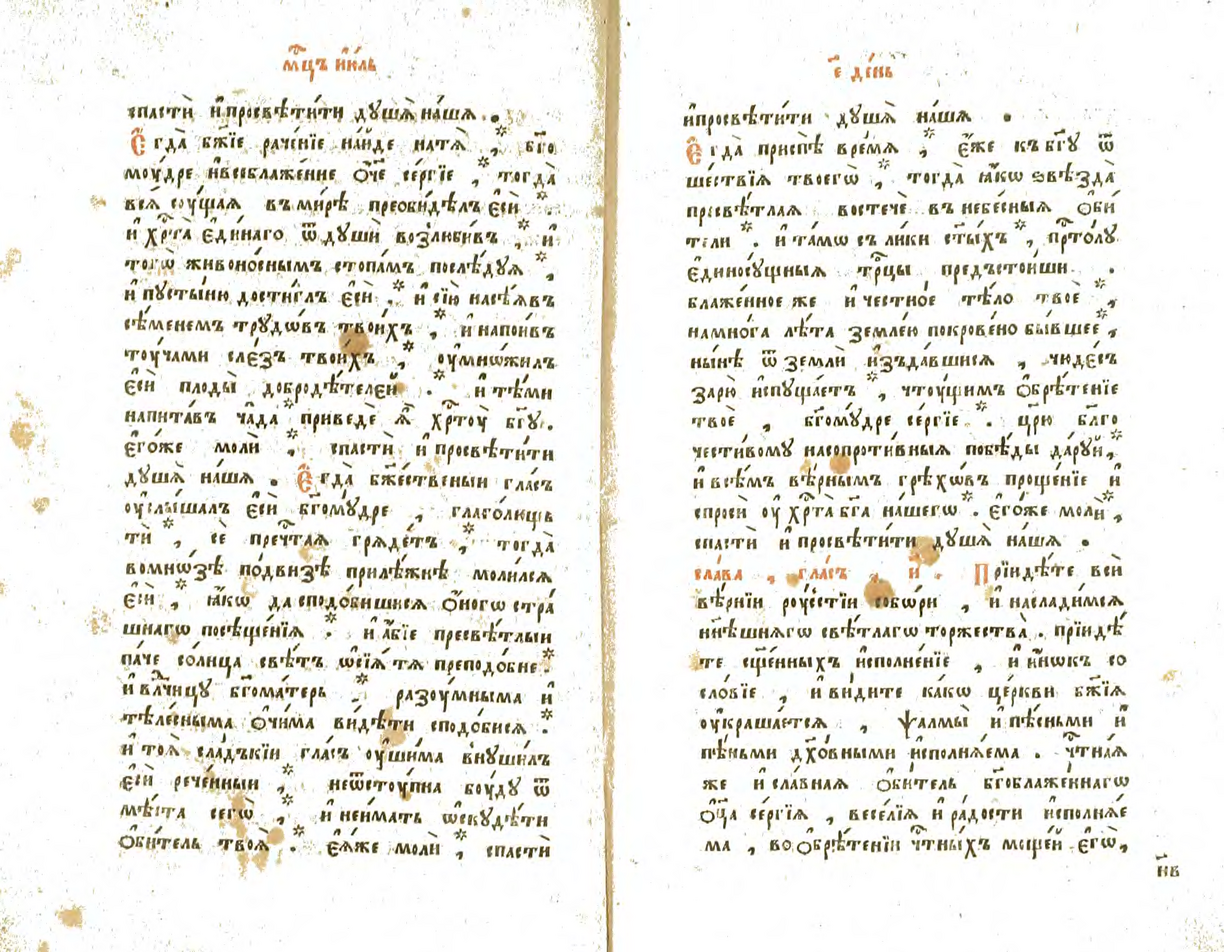 мⷭ҇цъ їю́ль
спастѝ и҆просвѣти́ти дꙋшѧ̀ на́шѧ .
Е҆гда̀ бж҃їе раче́нїе на́йде натѧ̀ , бг҃о
моу́дре и҆всеблаже́нне ѻ҆́ч҃е се́ргїе , тогда̀
всѧ̀ сꙋ́щаѧ въми́рѣ преѻби́дѣлъ є҆сѝ *
и҆ хрⷭ҇та̀ є҆ди́наго ѿ дꙋшѝ возлюби́въ , и҆
тогѡ̀ живоно́снымъ стопа́мъ послѣ́дꙋѧ ,
и҆ пꙋсты́ню дости́глъ є҆сѝ , и҆ сїю̀ насѣ́ѧвъ
сѣ́менемъ трꙋдѡ́въ твои́хъ , и҆ напои́въ
тоу́чами сле́зъ твои́хъ , оу҆мно́жилъ
є҆сѝ плоды̀ добродѣ́телей . и҆ тѣ́ми
напита́въ ча̑да приведѐ ѧ҆̀ хрⷭ҇тоу̀ бг҃ꙋ .
є҆го́же молѝ , спастѝ и҆ просвѣти́ти
дꙋшѧ̀ на́шѧ . Е҆гда̀ бж҃е́ственыи гла́съ
оу҆слы́шалъ є҆сѝ бг҃омꙋ́дре , глаго́лющь
тѝ , сѐ пречⷭ҇таѧ грѧде́тъ , тогда̀
вомно́зѣ по́двизѣ прилѣ́жнѣ моли́лсѧ
є҆сѝ , ꙗ҆́кѡ да сподо́бишисѧ ѻ҆́ногѡ стра́
шнагѡ посѣще́нїѧ . и҆ а҆́бїе пресвѣ́тлыи
па́че со́лнца свѣ́тъ ѡ҆сїѧ́ тѧ преподо́бне .
и҆ влⷣчицꙋ бг҃ома́терь , разоу́мныма и҆
тѣле́сныма ѻ҆чи́ма ви́дѣти сподо́бисѧ .
и҆ тоѧ̀ сла́дъкїи гла́съ оу҆ши́ма внꙋши́лъ
є҆сѝ рече́нныи , неѿстоу́пна боу́дꙋ ѿ
мѣ́ста сегѡ̀ , и҆ неи́мать ѡ҆скꙋдѣ́ти
ѻ҆би́тель твоѧ̀ . є҆ѧ́же молѝ , спастѝ
є҃ де́нь
и҆просвѣти́ти дꙋшѧ̀ на́шѧ .
Е҆гда̀ приспѣ̀ вре́мѧ , є҆́же къ бг҃ꙋ ѿ
ше́ствїѧ твоегѡ̀ , тогда̀ ꙗ҆́кѡ ѕвѣзда̀
пресвѣ́тлаѧ востечѐ въ небе́сныѧ ѻ҆би́
тели . и҆ та́мѡ съ ли́ки ст҃ы́хъ , прⷭ҇то́лꙋ
є҆диносꙋ́щныѧ трⷪ҇цы предъстои́ши .
блаже́нное же и҆ честно́е тѣ́ло твоѐ ,
намно́га лѣ́та земле́ю покрове́но бы́вшее ,
ны́нѣ ѿ землѝ и҆зъда́вшисѧ , чюде́съ
зарю̀ и҆спꙋща́етъ , чтоу́щимъ ѻ҆брѣ́тенїе
твоѐ , бг҃омꙋ́дре се́ргїе . цр҃ю̀ бл҃го
чести́вомꙋ насопроти́вныѧ побѣ́ды да́рꙋй ,
и҆ всѣ́мъ вѣ́рнымъ грѣхѡ́въ проще́нїе и҆
спросѝ оу҆ хрⷭ҇та̀ бг҃а на́шегѡ . є҆го́же молѝ ,
спастѝ и҆ просвѣти́ти дꙋшѧ̀ на́шѧ .
сла́ва , гла́съ , и҃ . Прїиде́те всѝ
вѣ́рнїи роу́сстїи собо́ри , и҆ насладимсѧ
нн҃ѣшнѧгѡ свѣ́тлагѡ торжества̀ . прїидѣ́
те сщ҃е́нныхъ и҆сполне́нїе , и҆ и҆́нѡкъ со
сло́вїе , и҆ ви́дите ка́кѡ це́ркви бж҃їѧ
оу҆краша́етсѧ , ѱалмы̀ и҆ пѣ́сньми и҆
пѣ́ньми дх҃о́вными и҆сполнѧ́ема . чтⷭ҇наѧ
же и҆ сла́внаѧ ѻ҆би́тель бг҃облаже́ннагѡ
ѻ҆ц҃а̀ се́ргїѧ , весе́лїѧ и҆ ра́дости и҆сполнѧ́е
ма , во ѻ҆брѣ́тенїи чтⷭ҇ны́хъ моще́й є҆гѡ̀ ,
н҃в